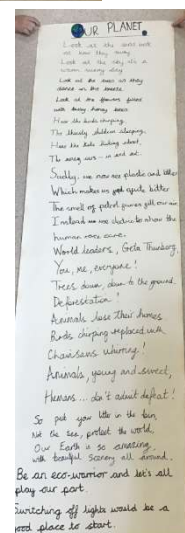 OUR PLANET.
Look at the
Look at the sky it's a
warm sunny day
Look at the trees as they
dance in the breeze
Look at the flowers filled
with busy honey bees.
Hear the birds chirping,
The children sleeping,
Hear the kids
The cars ... in and out.
Sadly, we now see plastic and litter
Which makes us quite bitter
The smell of petrol fumes fill our air
Instead use electric to show the
human race care.
World leaders, Greta Thunberg,
You, me, everyone!
Trees down, down to the ground.
Deforestation!
Animals lose their homes
Birds chirping replaced with
Chainsaws whirring!
Animals, young and sweet,
Humans ... don't admit defeat!
So put your litter in the bin,
Not the sea, protect the world,
Our Earth is so amazing,
with beautiful scenery all around.
Be an eco-warrior and let's all
play our part.
Switching off lights would be a
good place to start.